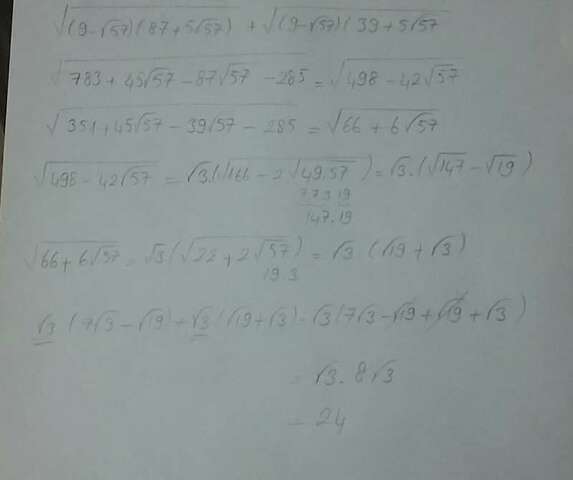 √(9-√57)(87+5√57) + √(9-√57)(39+5√57
√783+45√57-87√57-285 = √498-42√57
√351+45√57-39√57-285 = √66+6√57
√498-42√57 = √3.(√166-2√49.57) = √3.(√147-√19)
7 7 3 19
147.19
√66+6√57 = √3(√22+2√57) = √3.(√19+√3)
19 3
√3(7√3-√19)+√3(√19+√3)=√3(7√3-√19+√19+√3)
= √3.8√3
= 24